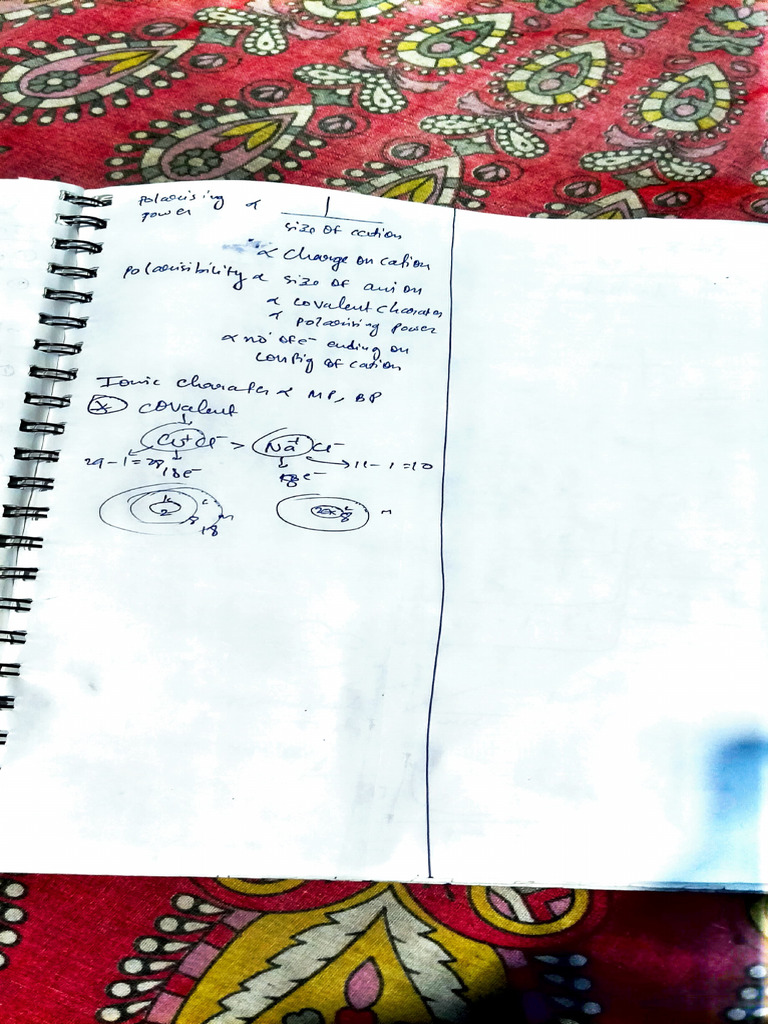 polarising
power ∝ 1
size of cation
∝ charge on cation
polarisibility ∝ size of anion
∝ covalent character
∝ polarising power
∝ no of e⁻ ending on
config of cation
Ionic character ∝ MP, BP
Ex covalent
Cu⁺Cl⁻ > Na⁺Cl⁻
29-1=28 18e⁻ 8e⁻ 11-1=10
K L M
2 8 18
2 8 M